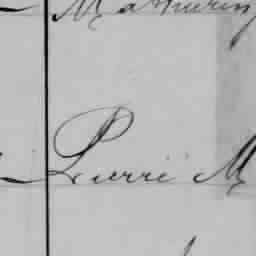 Mathurin
Pierre M